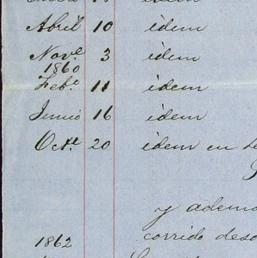 Abril 10 idem
Nov.e 3 idem
1860
Feb.o 11 idem
Junio 16 idem
Oct.e 20 idem en
y
1862 corrido